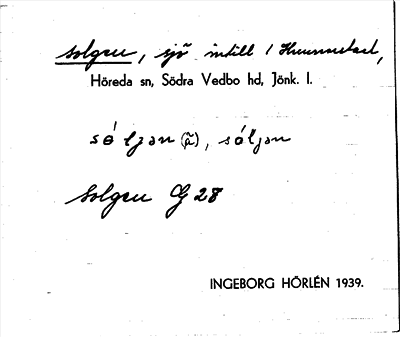 Solgen, sjö intill / Hunnerstad,
Höreda sn, Södra Vedbo hd, Jönk. l.
sóljən (ä), sóljən
Solgen G 28
INGEBORG HÖRLÉN 1939.